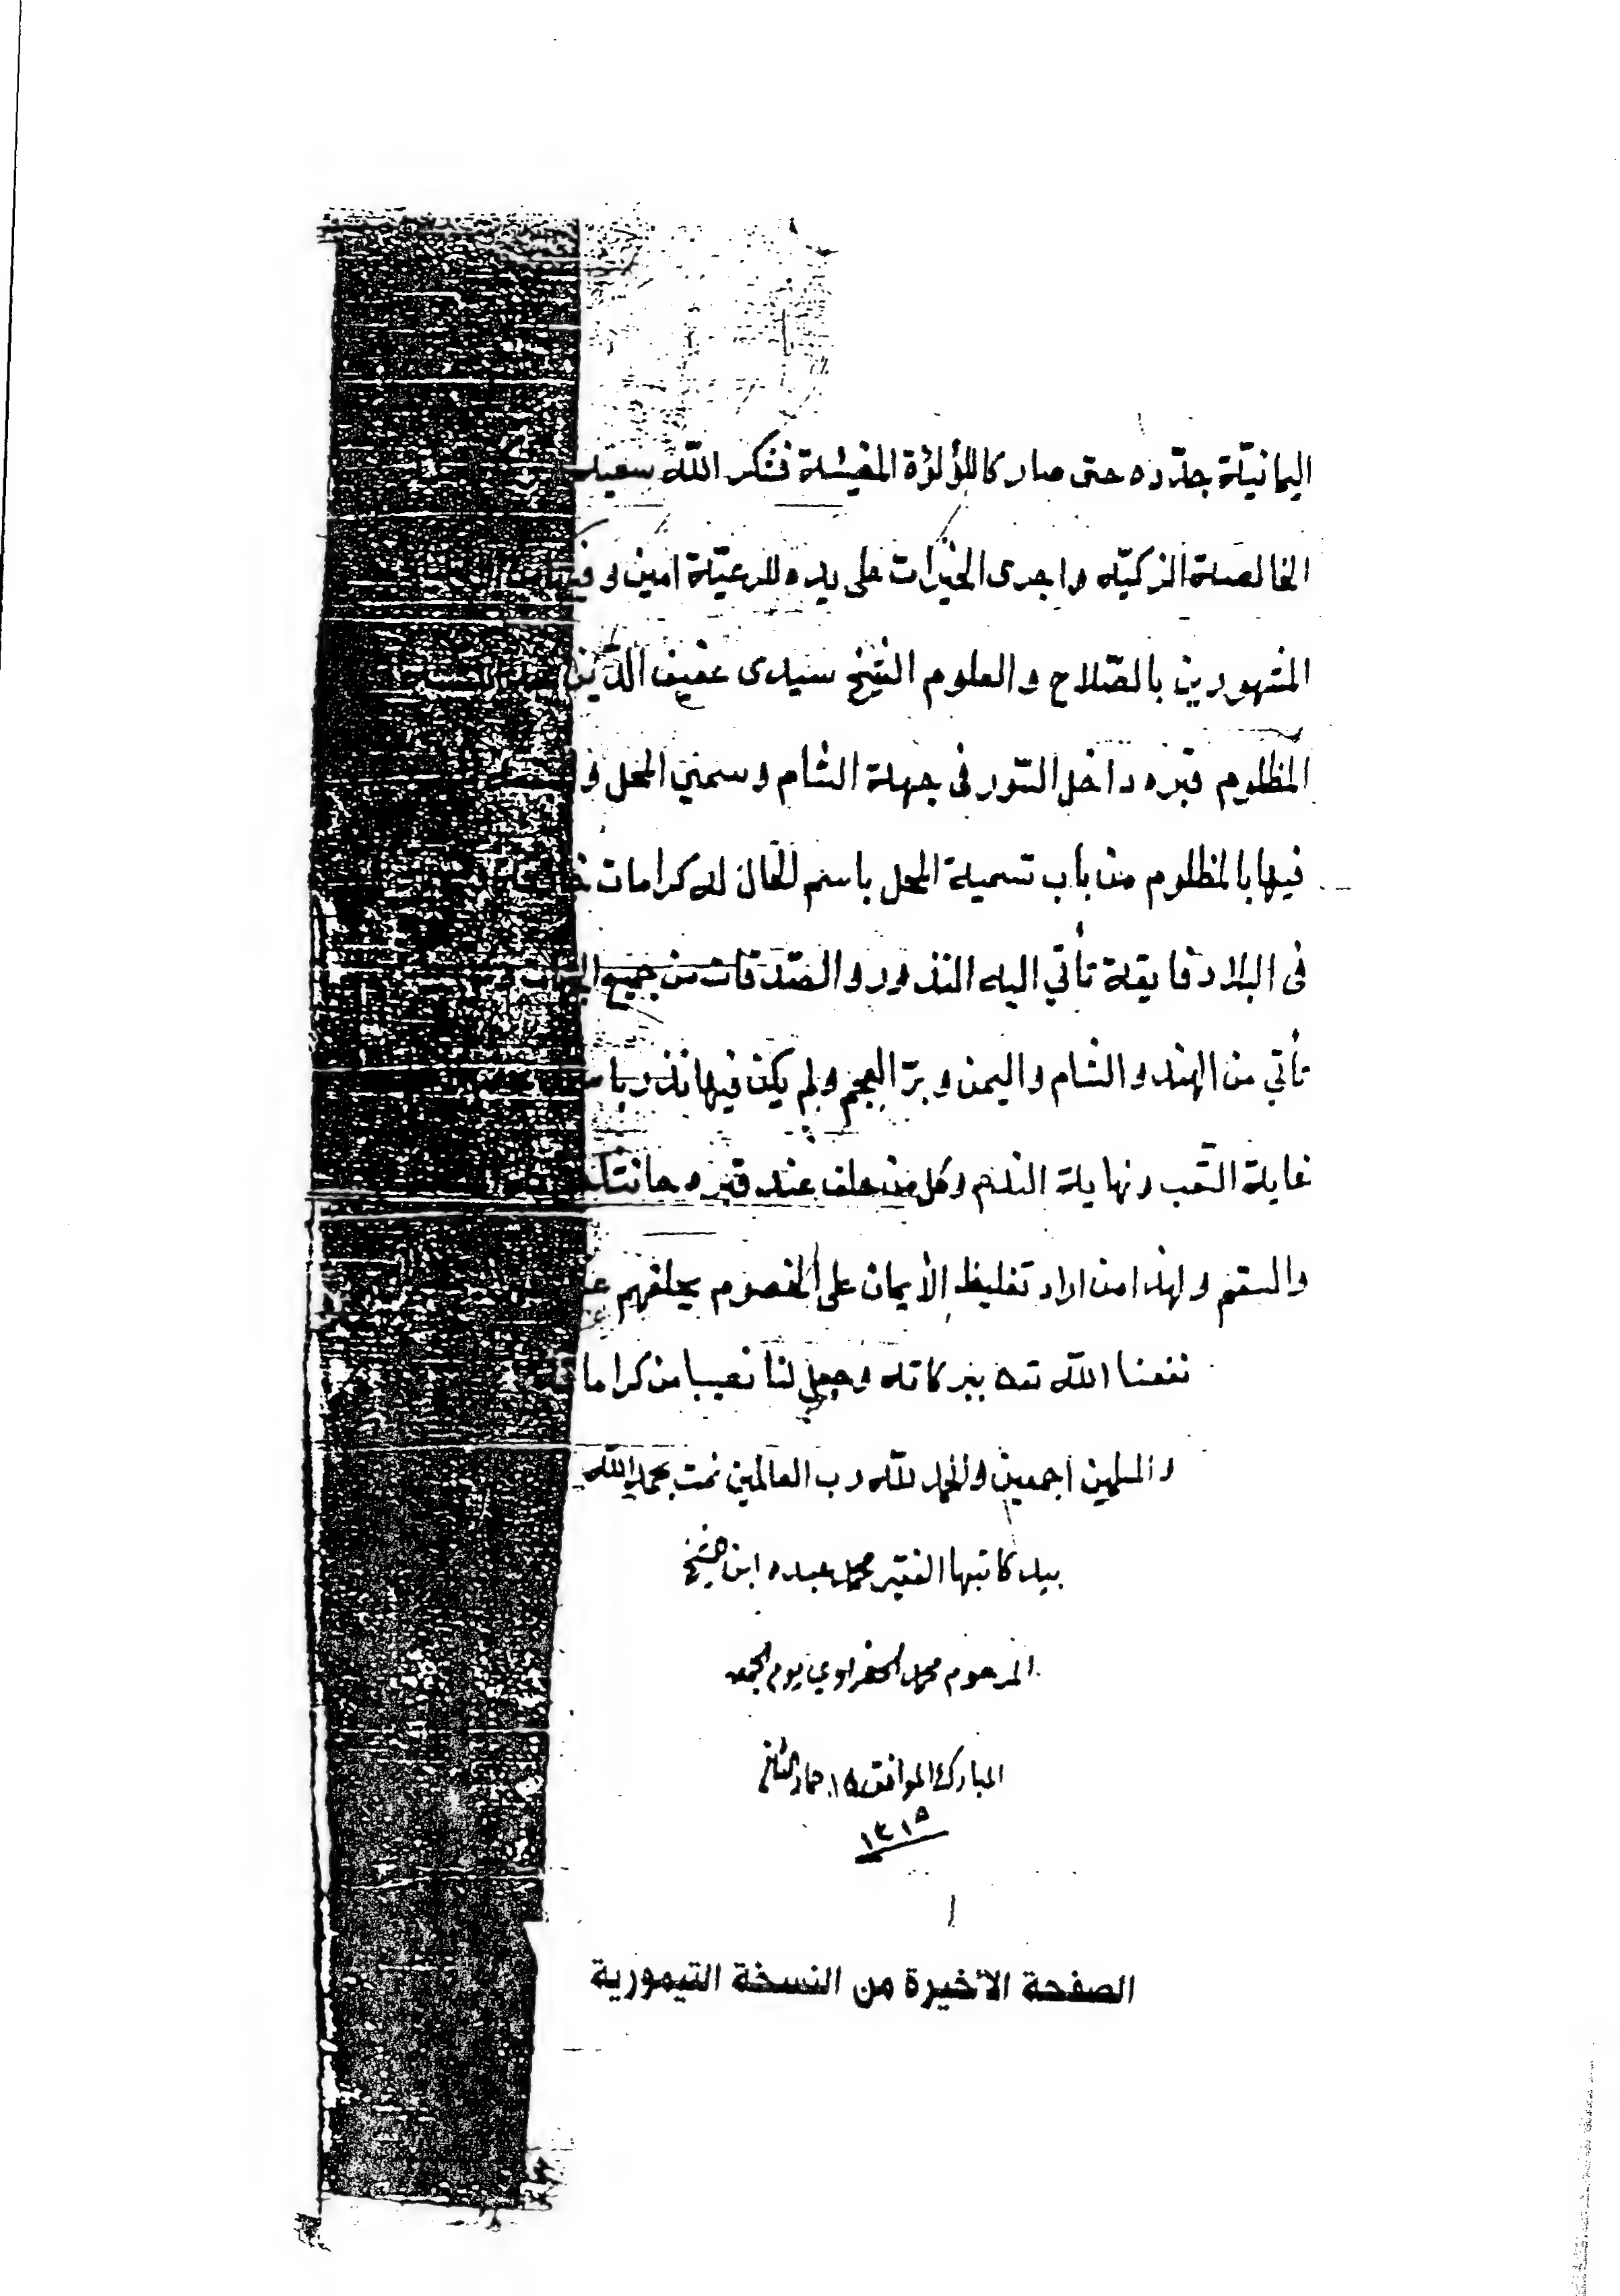 اليمانيّة جدّده حتى صار كاللؤلؤة المضيئة فشكر الله سعيه
الخالصة الزكيّه واجرى الخيرات على يده للرعيّة امين وفيها
المشهورين بالصّلاح والعلوم الشيخ سيدى عفيف الدّين
المظلوم قبره داخل السّور فى جهة الشام وسمي المحل
فيها بالمظلوم من باب تسمية المحل باسم الحال له كرامات
فى البلاد فايقة تأتي اليه النذور والصّدقات من جميع
تأتي من الهند والشام واليمن وبرّ العجم ولم يكن فيها نذر
غاية التّعب ونهاية الندم وكل من حلف عند قبره حانثا
والسقم ولهذا من اراد تغليظ الأيمان على الخصوم يحلفهم
نفعنا الله تعه ببركاته وجعل لنا نصيبا من كراماته
والمسلمين اجمعين والحمد لله رب العالمين تمت بحمد الله
بيد كاتبها الفقير محمد عبده ابن الشيخ
المرحوم محمد يوم الجمعه
المبارك الموافق ١٥ جماد الثاني
١٣١٥
الصفحة الأخيرة من النسخة التيمورية